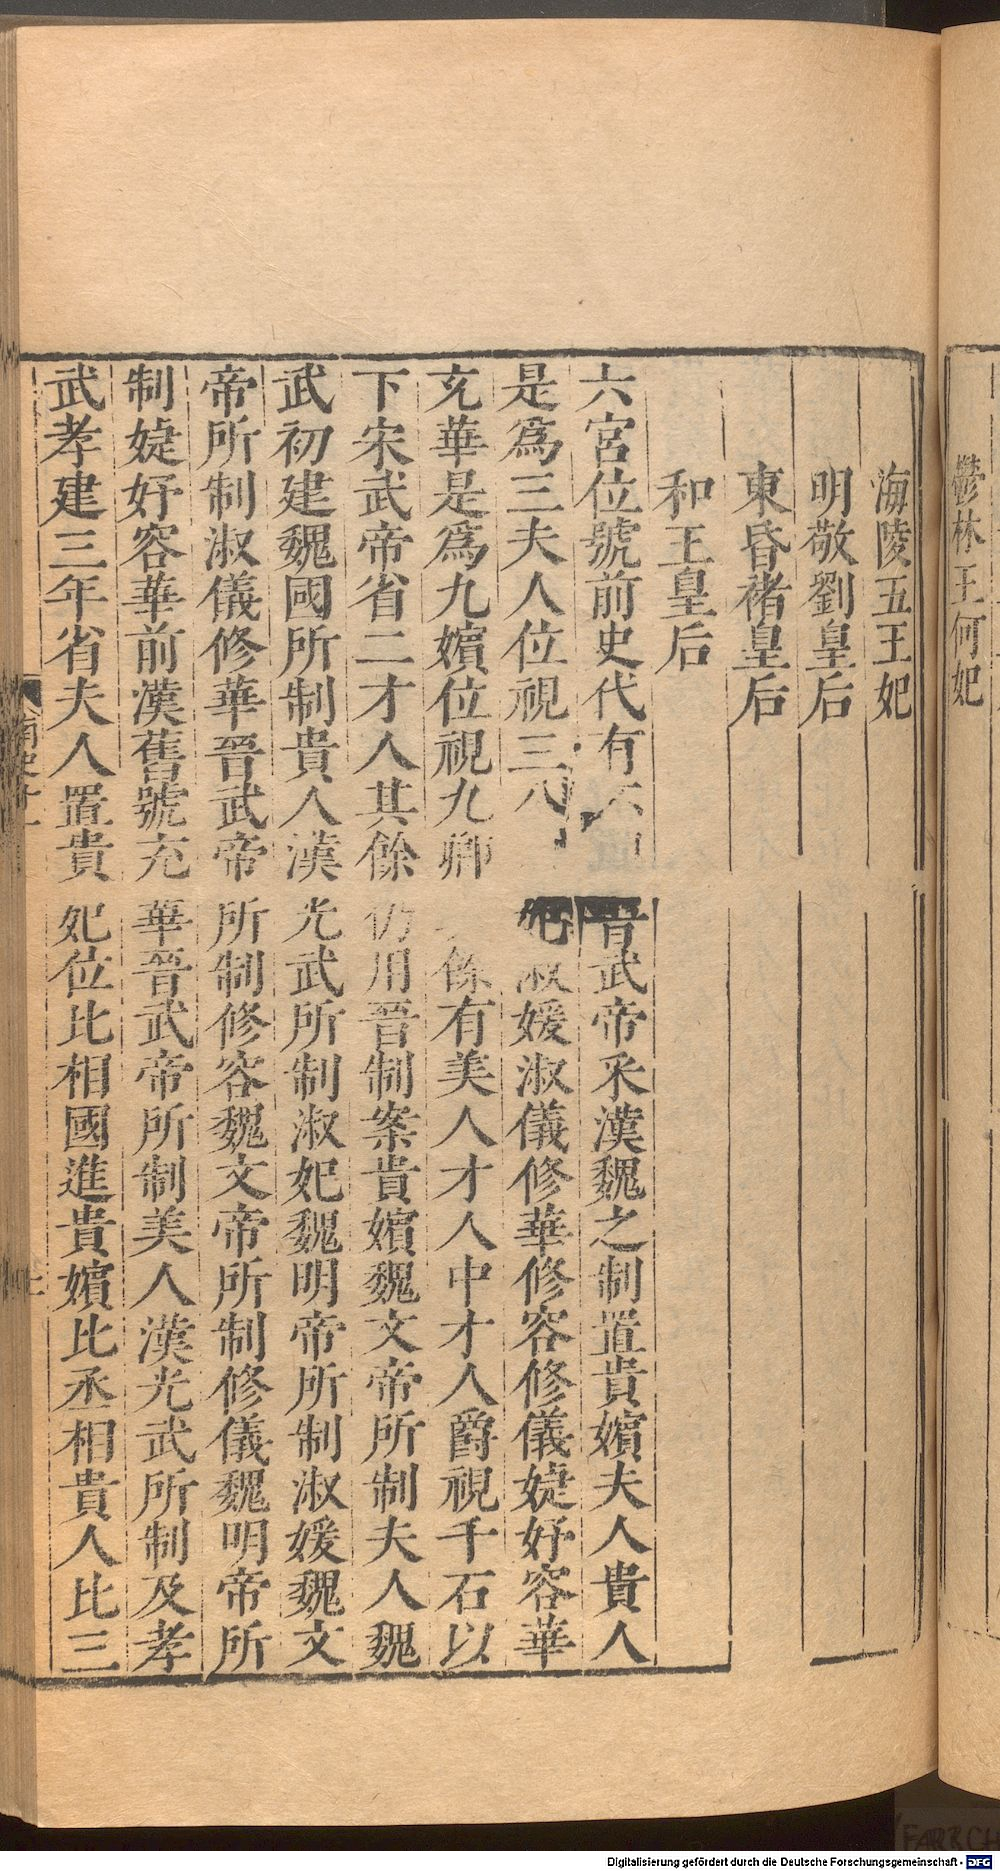 鬱林王何妃
海陵五王妃
明敬劉皇后
東昏褚皇后
和王皇后
六宮位號前史代有不同晉武帝采漢魏之制置貴嬪夫人貴人
是爲三夫人位視三八妃淑媛淑儀修華修容修儀婕妤容華
充華是爲九嬪位視九卿餘有美人才人中才人爵視千石以
下宋武帝省二才人其餘仍用晉制案貴嬪魏文帝所制夫人魏
武初建魏國所制貴人漢光武所制淑妃魏明帝所制淑媛魏文
帝所制淑儀修華晉武帝所制修容魏文帝所制修儀魏明帝所
制婕妤容華前漢舊號充華晉武帝所制美人漢光武所制及孝
武孝建三年省夫人置貴妃位比相國進貴嬪比丞相貴人比三
南史十一
Digitalisierung gefördert durch die Deutsche Forschungsgemeinschaft - DFG